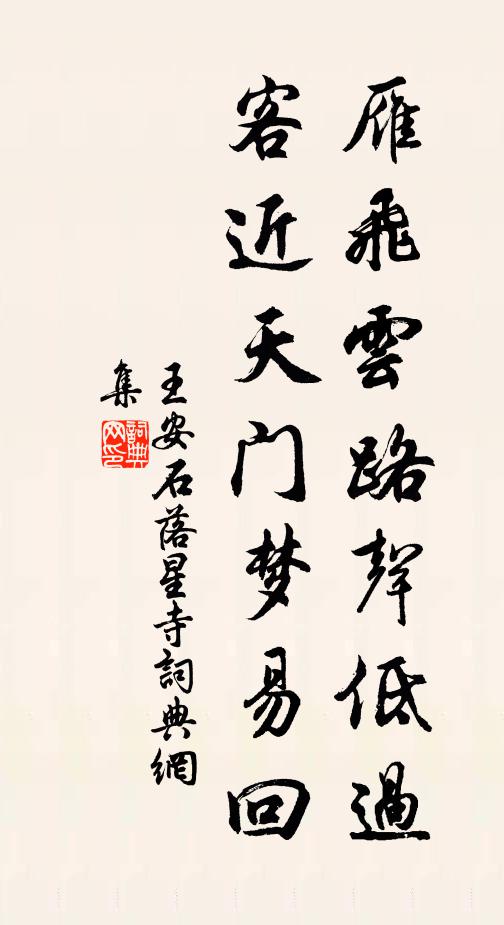 雁飛雲路聲低過
客近天门梦易回
王安石落星寺詞典網
集
詞典网印